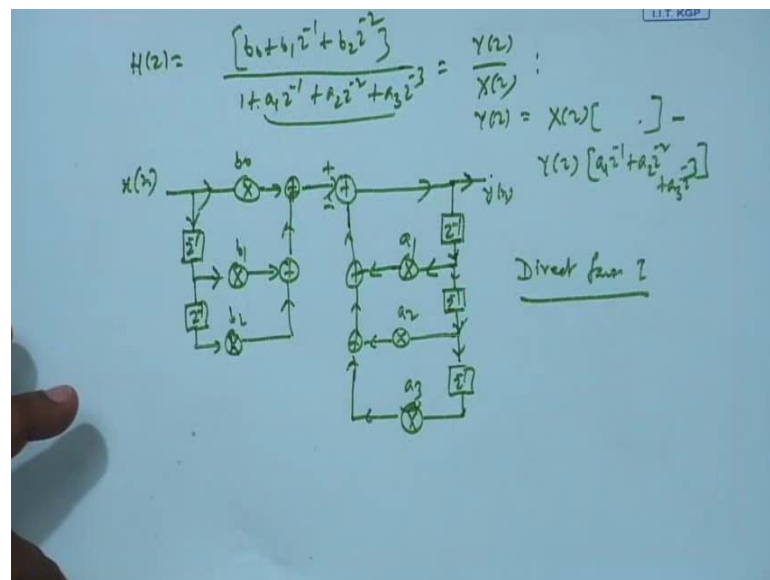 I.I.T. KGP
H(z) = [b₀+b₁z⁻¹+b₂z⁻²] / 1+a₁z⁻¹+a₂z⁻²+a₃z⁻³ = Y(z) / X(z) :
Y(z) = X(z)[ . ] –
Y(z)[a₁z⁻¹+a₂z⁻²
+a₃z⁻³]
x(n) b₀ + + + – + y(n)
z⁻¹ z⁻¹
b₁ + + a₁
z⁻¹ z⁻¹
b₂ + a₂
z⁻¹
a₃
Direct form I